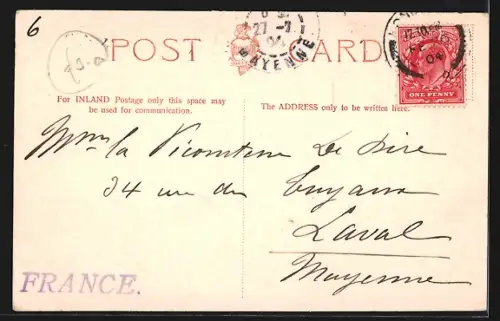 6
POST CARD
27-7
04
MAYENNE
12.10
04
ONE PENNY
For INLAND Postage only this space may
be used for communication.
The ADDRESS only to be written here.
Mme la Vicomtesse De Sire
34 rue du
Laval
Mayenne
FRANCE.